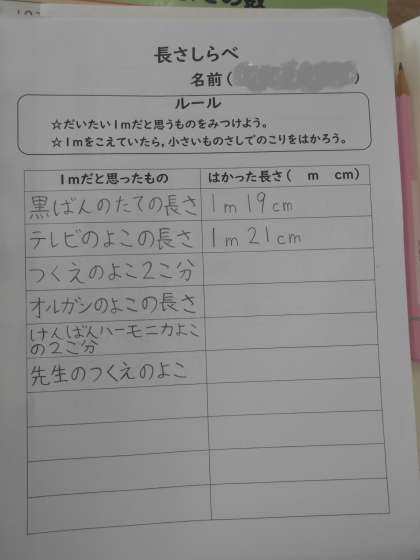 長さしらべ
名前( )
ルール
☆だいたい1mだと思うものをみつけよう。
☆1mをこえていたら,小さいものさしでのこりをはかろう。
1mだと思ったもの はかった長さ( m cm)
黒ばんのたての長さ 1m19cm
テレビのよこの長さ 1m21cm
つくえのよこ2こ分
オルガンのよこの長さ
けんばんハーモニカよこ
の2こ分
先生のつくえのよこ